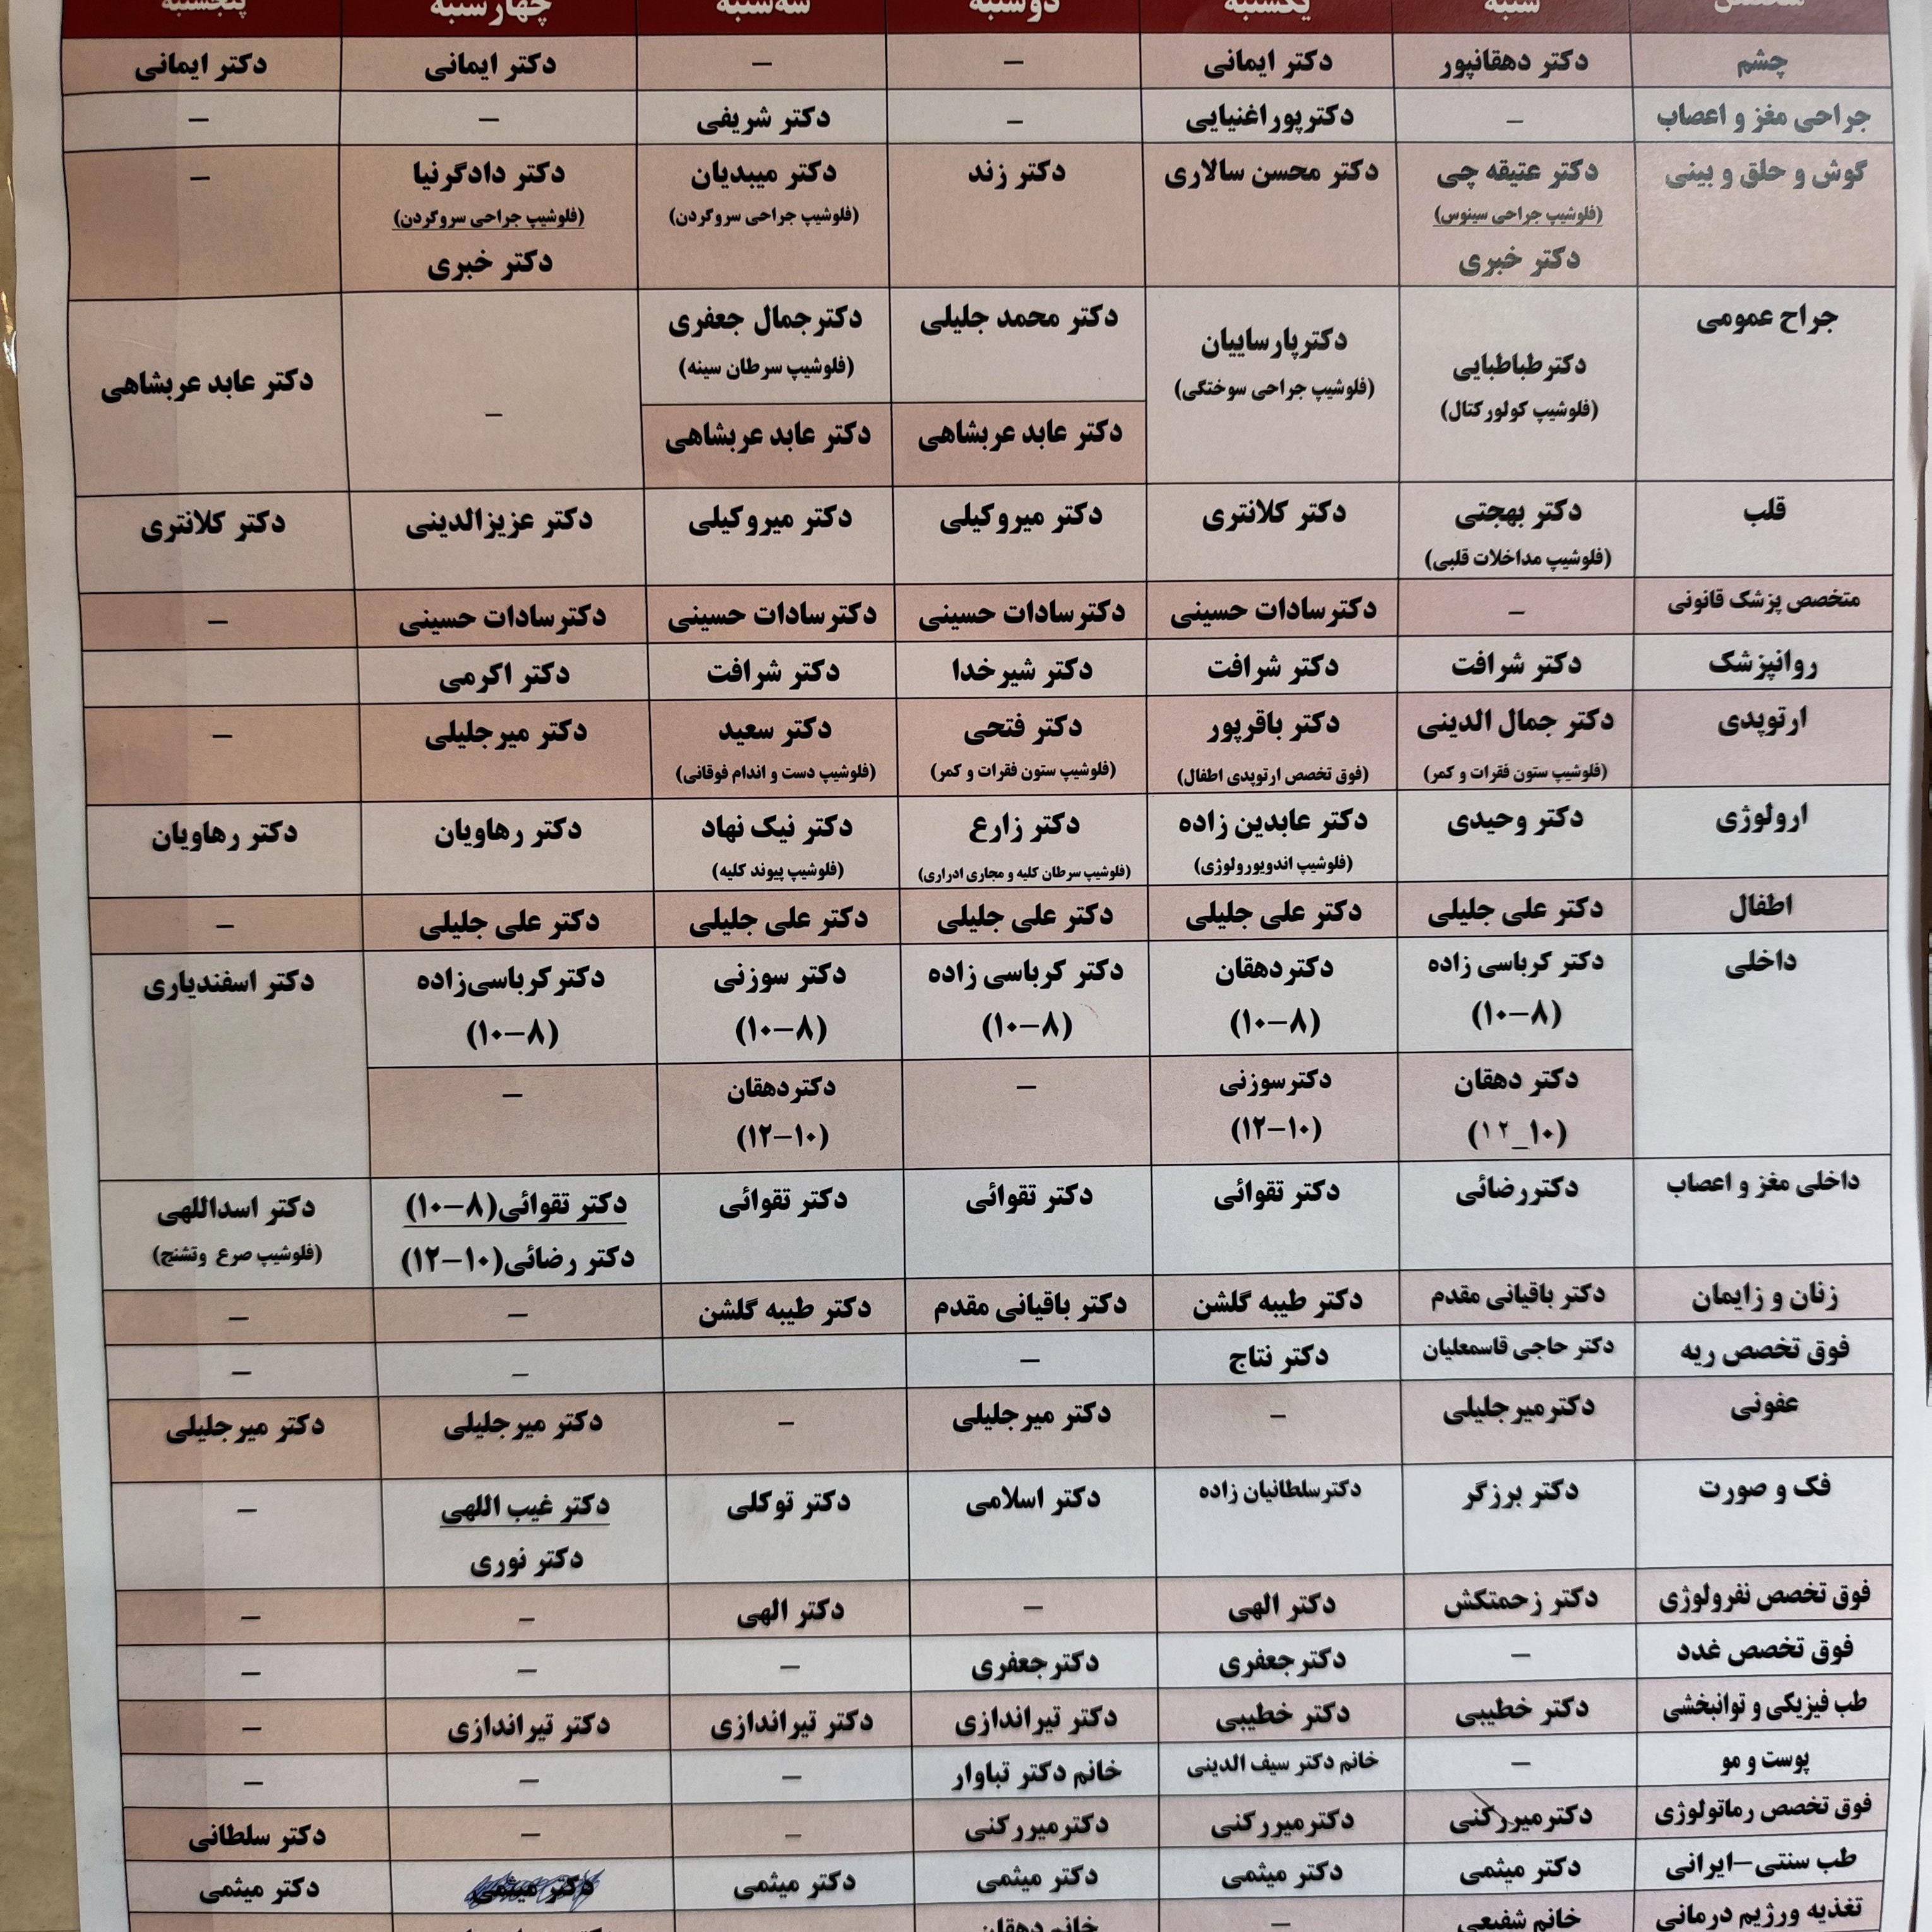 تخصص شنبه یکشنبه دوشنبه سه‌شنبه چهارشنبه پنجشنبه
چشم دکتر دهقانپور دکتر ایمانی – – دکتر ایمانی دکتر ایمانی
جراحی مغز و اعصاب – دکترپوراغنیایی – دکتر شریفی – –
گوش و حلق و بینی دکتر عتیقه چی دکتر محسن سالاری دکتر زند دکتر میبدیان دکتر دادگرنیا –
(فلوشیپ جراحی سینوس) (فلوشیپ جراحی سروگردن) (فلوشیپ جراحی سروگردن)
دکتر خبری دکتر خبری
جراح عمومی دکترطباطبایی دکترپارساییان دکتر محمد جلیلی دکترجمال جعفری – دکتر عابد عربشاهی
(فلوشیپ کولورکتال) (فلوشیپ جراحی سوختگی) (فلوشیپ سرطان سینه)
دکتر عابد عربشاهی دکتر عابد عربشاهی
قلب دکتر بهجتی دکتر کلانتری دکتر میروکیلی دکتر میروکیلی دکتر عزیزالدینی دکتر کلانتری
(فلوشیپ مداخلات قلبی)
متخصص پزشک قانونی – دکترسادات حسینی دکترسادات حسینی دکترسادات حسینی دکترسادات حسینی –
روانپزشک دکتر شرافت دکتر شرافت دکتر شیرخدا دکتر شرافت دکتر اکرمی
ارتوپدی دکتر جمال الدینی دکتر باقرپور دکتر فتحی دکتر سعید دکتر میرجلیلی –
(فلوشیپ ستون فقرات و کمر) (فوق تخصص ارتوپدی اطفال) (فلوشیپ ستون فقرات و کمر) (فلوشیپ دست و اندام فوقانی)
ارولوژی دکتر وحیدی دکتر عابدین زاده دکتر زارع دکتر نیک نهاد دکتر رهاویان دکتر رهاویان
(فلوشیپ اندویورولوژی) (فلوشیپ سرطان کلیه و مجاری ادراری) (فلوشیپ پیوند کلیه)
اطفال دکتر علی جلیلی دکتر علی جلیلی دکتر علی جلیلی دکتر علی جلیلی دکتر علی جلیلی –
داخلی دکتر کرباسی زاده دکتردهقان دکتر کرباسی زاده دکتر سوزنی دکترکرباسی‌زاده دکتر اسفندیاری
(۸–۱۰) (۸–۱۰) (۸–۱۰) (۸–۱۰) (۸–۱۰)
دکتر دهقان دکترسوزنی – دکتردهقان –
(۱۰_۱۲) (۱۰–۱۲) (۱۰–۱۲)
داخلی مغز و اعصاب دکتررضائی دکتر تقوائی دکتر تقوائی دکتر تقوائی دکتر تقوائی(۸–۱۰) دکتر اسداللهی
دکتر رضائی(۱۰–۱۲) (فلوشیپ صرع وتشنج)
زنان و زایمان دکتر باقیانی مقدم دکتر طیبه گلشن دکتر باقیانی مقدم دکتر طیبه گلشن – –
فوق تخصص ریه دکتر حاجی قاسمعلیان دکتر نتاج – – –
عفونی دکترمیرجلیلی – دکتر میرجلیلی – دکتر میرجلیلی دکتر میرجلیلی
فک و صورت دکتر برزگر دکترسلطانیان زاده دکتر اسلامی دکتر توکلی دکتر غیب اللهی –
دکتر نوری
فوق تخصص نفرولوژی دکتر زحمتکش دکتر الهی – دکتر الهی – –
فوق تخصص غدد – دکترجعفری دکترجعفری – – –
طب فیزیکی و توانبخشی دکتر خطیبی دکتر خطیبی دکتر تیراندازی دکتر تیراندازی دکتر تیراندازی –
پوست و مو – خانم دکتر سیف الدینی خانم دکتر تباوار – – –
فوق تخصص رماتولوژی دکترمیررکنی دکترمیررکنی دکترمیررکنی – – دکتر سلطانی
طب سنتی–ایرانی دکتر میثمی دکتر میثمی دکتر میثمی دکتر میثمی دکتر میثمی دکتر میثمی
تغذیه ورژیم درمانی خانم شفیعی – خانم دهقان